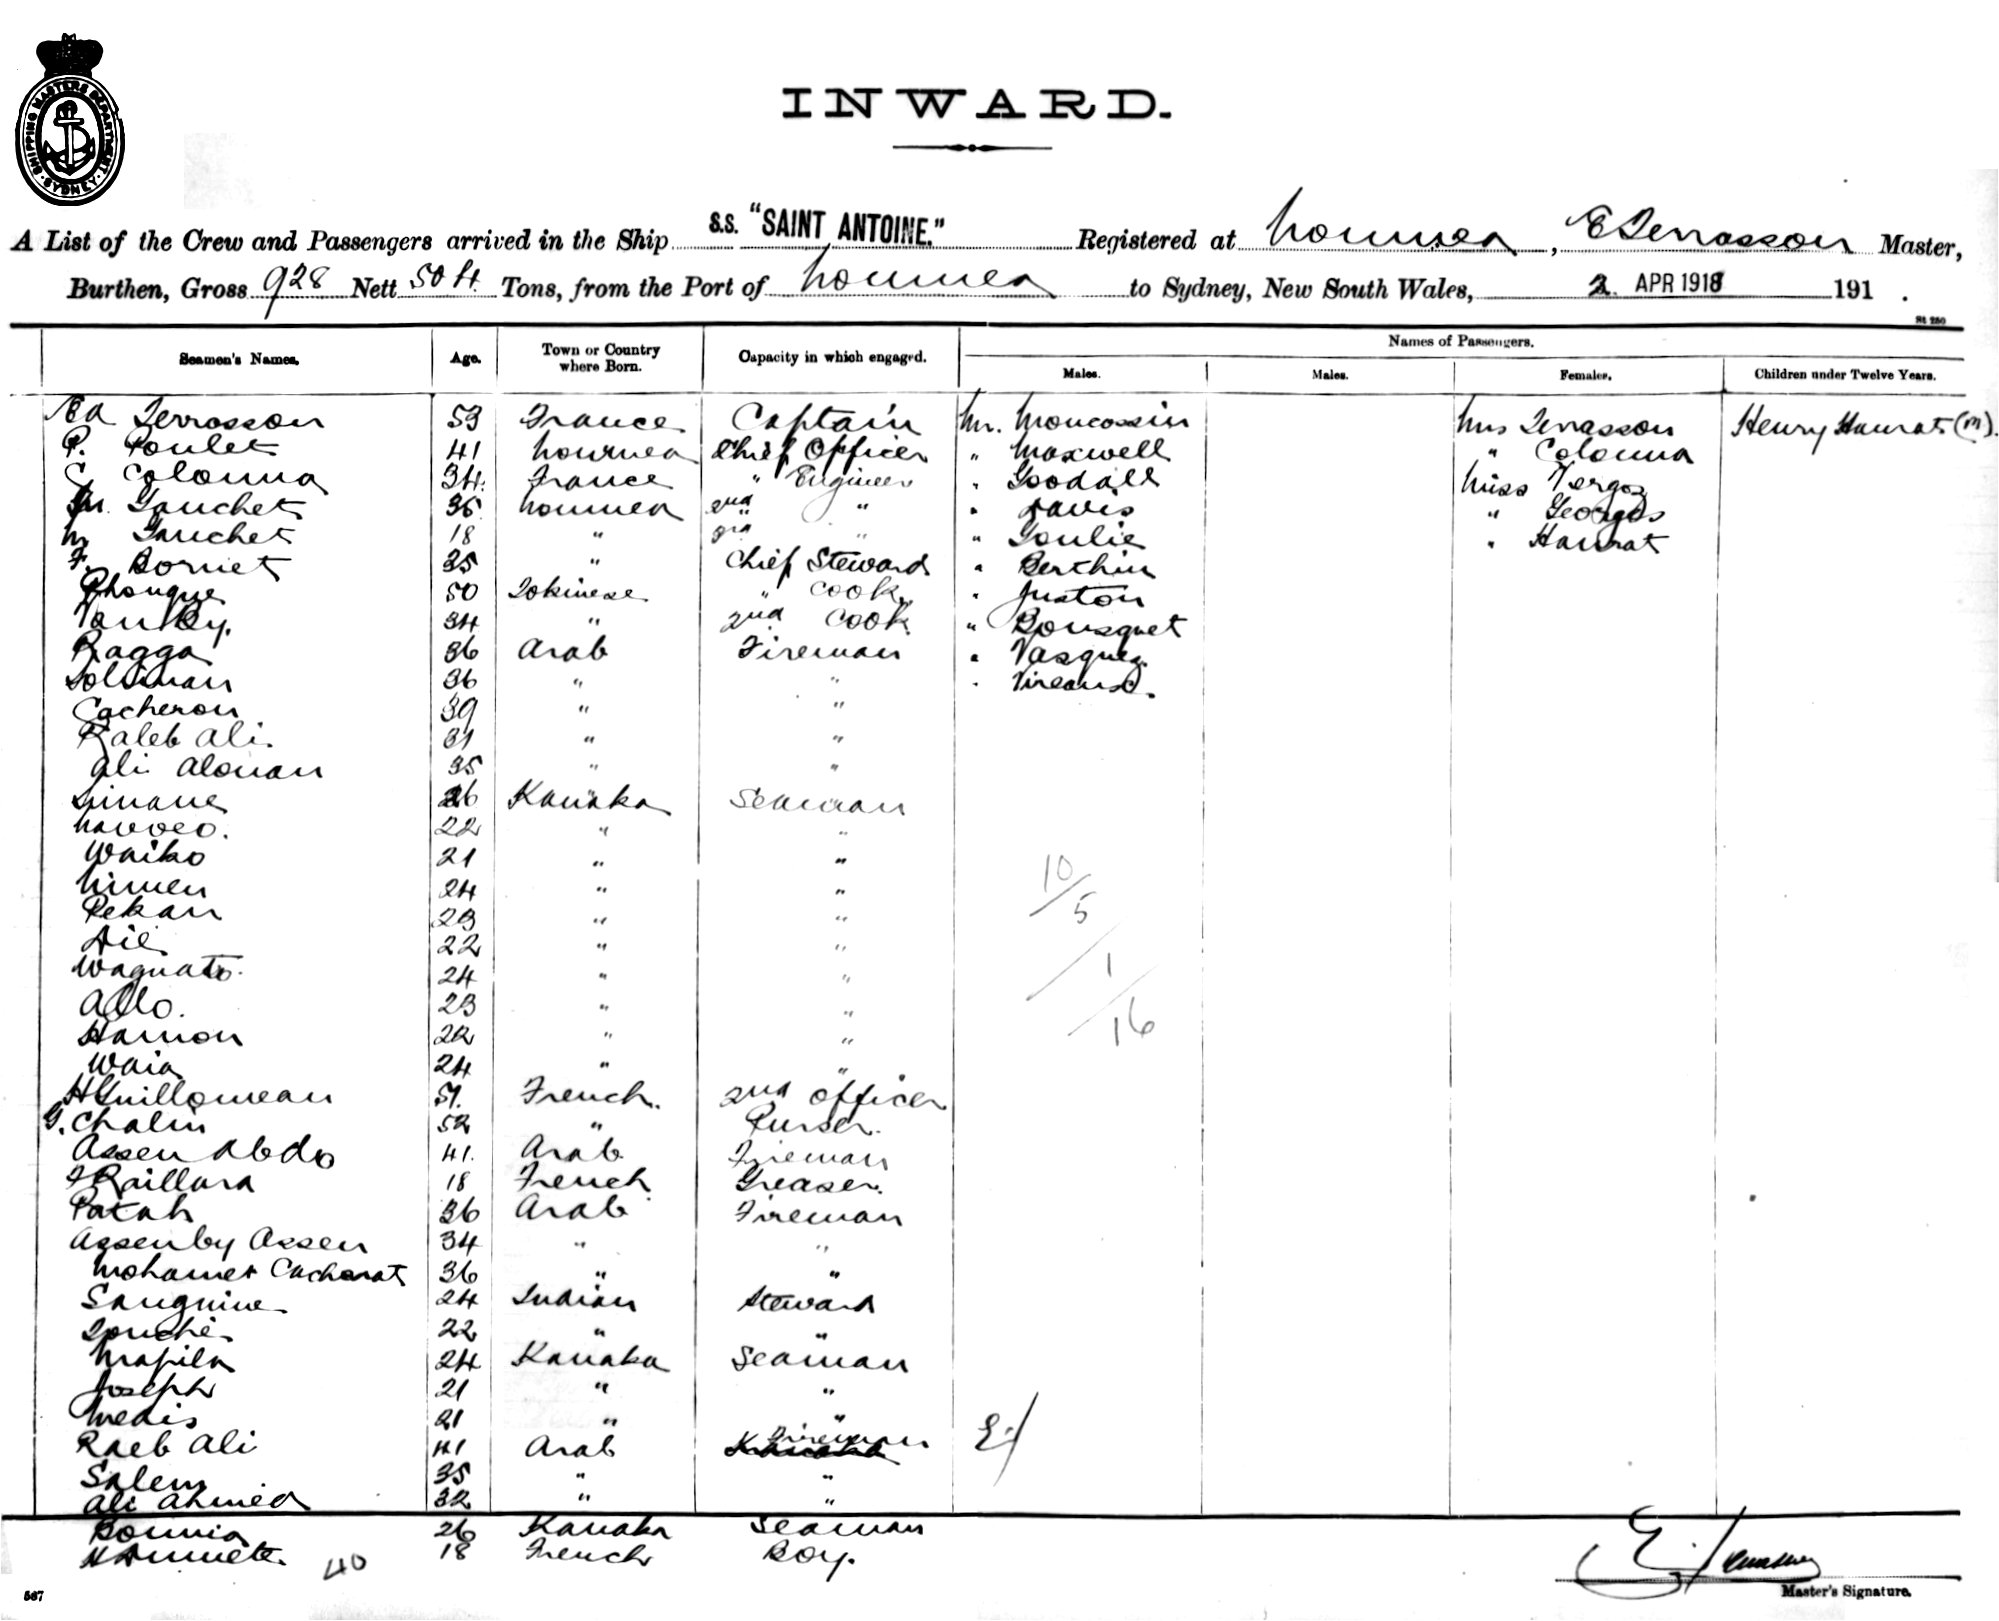 SHIPPING MASTERS DEPARTMENT SYDNEY
INWARD.
A List of the Crew and Passengers arrived in the Ship S.S. "SAINT ANTOINE." Registered at Noumea, E Terrasson Master,
Burthen, Gross 928 Nett 504 Tons, from the Port of Noumea to Sydney, New South Wales, 2 APR 1918 191 .
St 250
Seamen's Names. Age. Town or Country where Born. Capacity in which engaged. Names of Passengers.
Males. Males. Females. Children under Twelve Years.
Ed Terrasson 53 France Captain Mr. Moncassin Mrs Terrasson Henry Haurat (M).
P. Poulet 41 Noumea Chief Officer " Maxwell " Colonna
C Colonna 34 France " Engineer " Goodall Miss Verges
M. Gauchet 35 Noumea 2nd " " Davis " Georges
M. Gauchet 18 " 3rd " " Goulie " Haurat
F. Bornet 35 " Chief Steward " Berthin
Phongue 50 Tokinese " Cook " Juston
Van By. 34 " 2nd Cook " Bousquet
Ragga 36 Arab Fireman " Vasquez
Soliman 36 " " "
Cacheron 39 " "
Kaleb Ali. 31 " "
Ali Alonan 35 " "
26 Kanaka Seaman
22 " "
Waiko 21 " "
Nimen 24 " "
Pekan 23 " "
22 " "
Wagnato. 24 " "
Allo. 23 " "
Hamon 22 " "
Waia 24 " "
H Guillomeau 51. French. 2nd Officer
G. Chalin 52 " Purser.
Assen Abdo 41. Arab Fireman
F Raillard 18 French Greaser.
Patah 36 Arab Fireman
Assenby Assen 34 " "
Mohamet Cacharat 36 " "
Sanguine 24 Indian Steward
Souché 22 " "
Mapila 24 Kanaka Seaman
Joseph 21 " "
Medis 21 " "
Raeb Ali 41 Arab Kanaka Fireman
Salem 35 " "
Ali Ahmed 32 " "
Bonnia 26 Kanaka Seaman
18 French Boy.
10/5
/1
/16
40
Master's Signature.
567